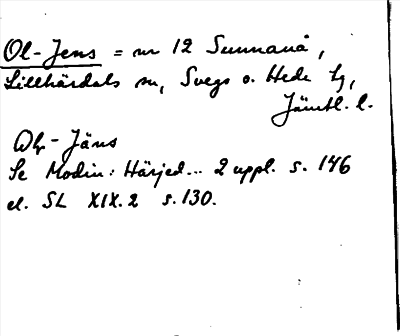 Ol-Jens = nr 12 Sunnanå,
Lillhärdals sn, Svegs o. Hede tg,
Jämtl. l.
Ol-Jäns
Se Modin: Härjed... 2 uppl. s. 146
el. SL XIX.2 s. 130.